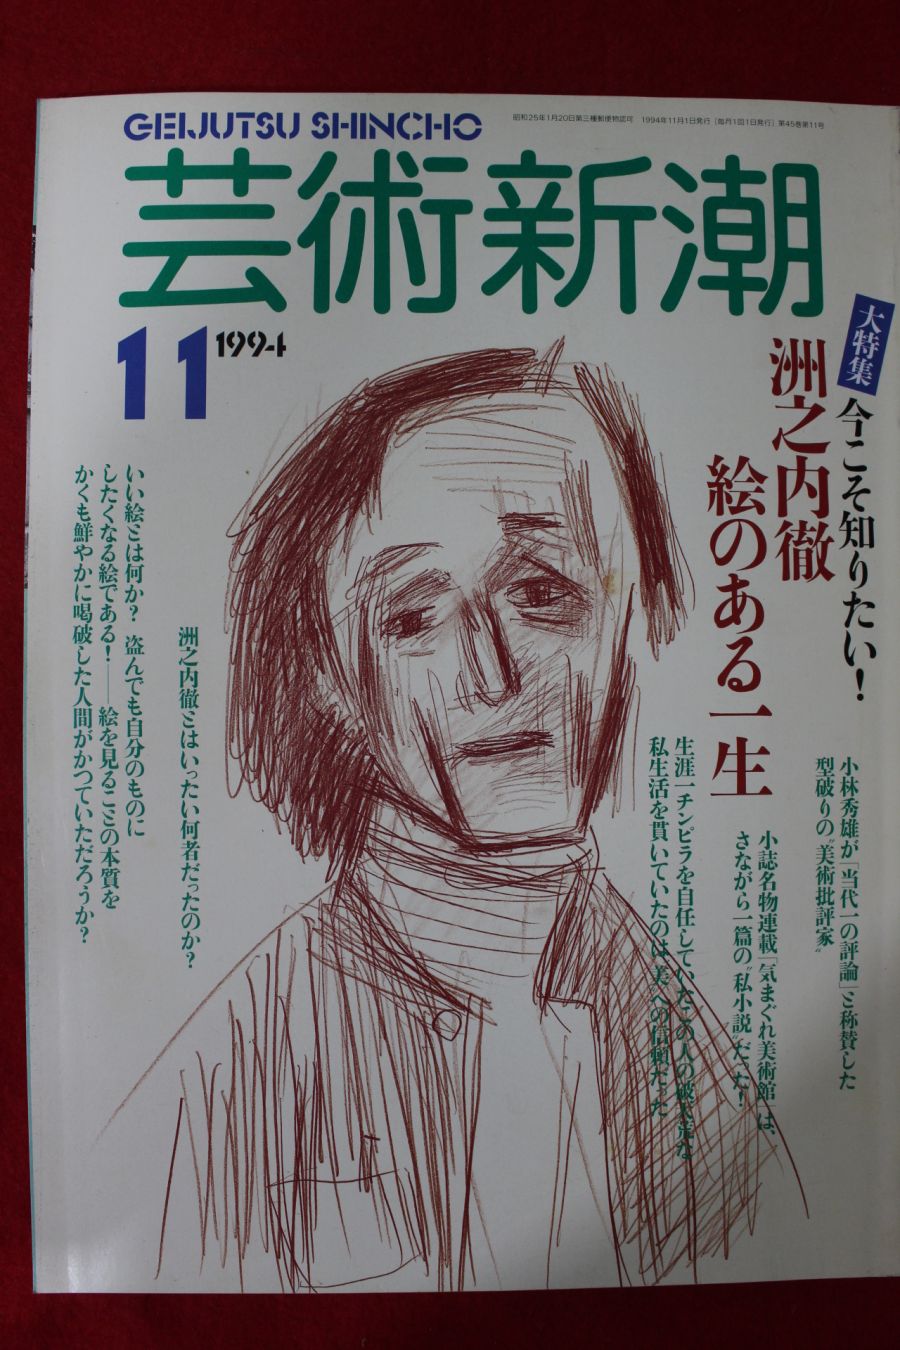 GEIJUTSU SHINCHO
昭和25年1月20日第三種郵便物認可 1994年11月1日発行［毎月1回1日発行］第45巻第11号
芸術新潮
11
1994
大特集
今こそ知りたい！
洲之内徹
絵のある一生
小林秀雄が「当代一の評論」と称賛した
型破りの〝美術批評家〟
小誌名物連載「気まぐれ美術館」は、
さながら一篇の〝私小説〟だった！
生涯一チンピラを自任していたこの人の破天荒な
私生活を貫いていたのは〝美〟への信頼だった
洲之内徹とはいったい何者だったのか？
いい絵とは何か？ 盗んでも自分のものに
したくなる絵である！――絵を見ることの本質を
かくも鮮やかに喝破した人間がかつていただろうか？